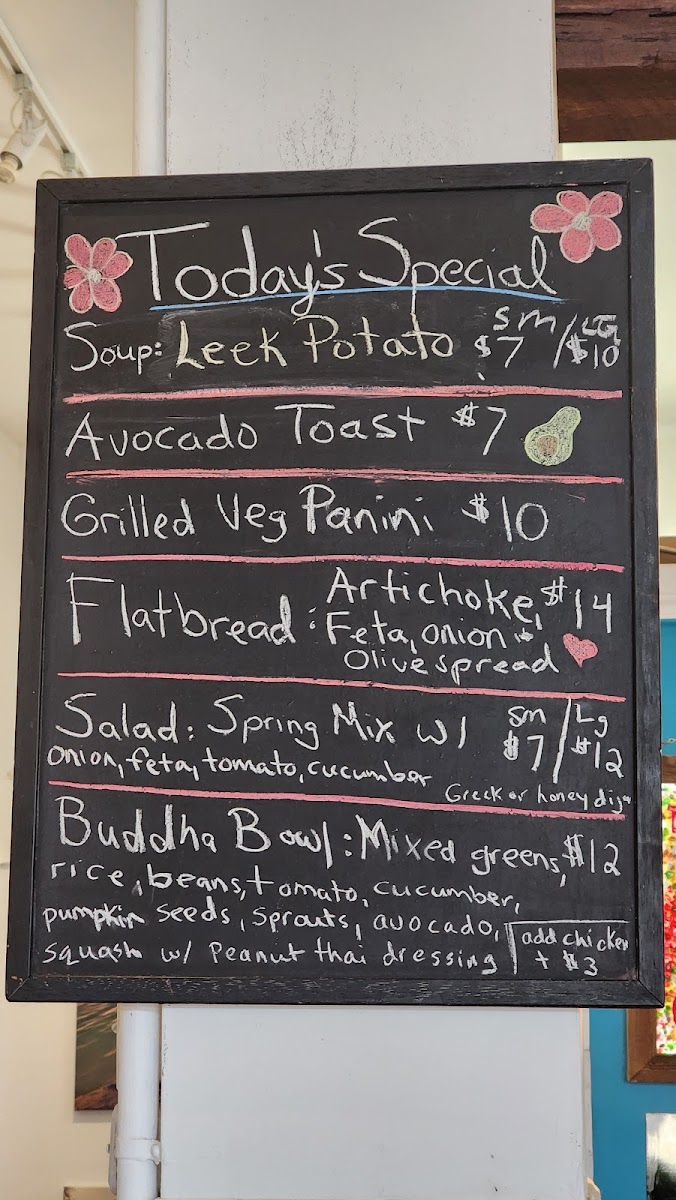 Today's Special
Soup: Leek Potato sm $7 / LG $10
Avocado Toast $7
Grilled Veg Panini $10
Flatbread: Artichoke, $14
Feta, onion &
Olive spread
Salad: Spring Mix w/ sm $7 / Lg $12
onion, feta, tomato, cucumber
Greek or honey dijn
Buddha Bowl: Mixed greens, $12
rice, beans, tomato, cucumber,
pumpkin seeds, sprouts, avocado,
squash w/ Peanut thai dressing
add chicken
+ $3